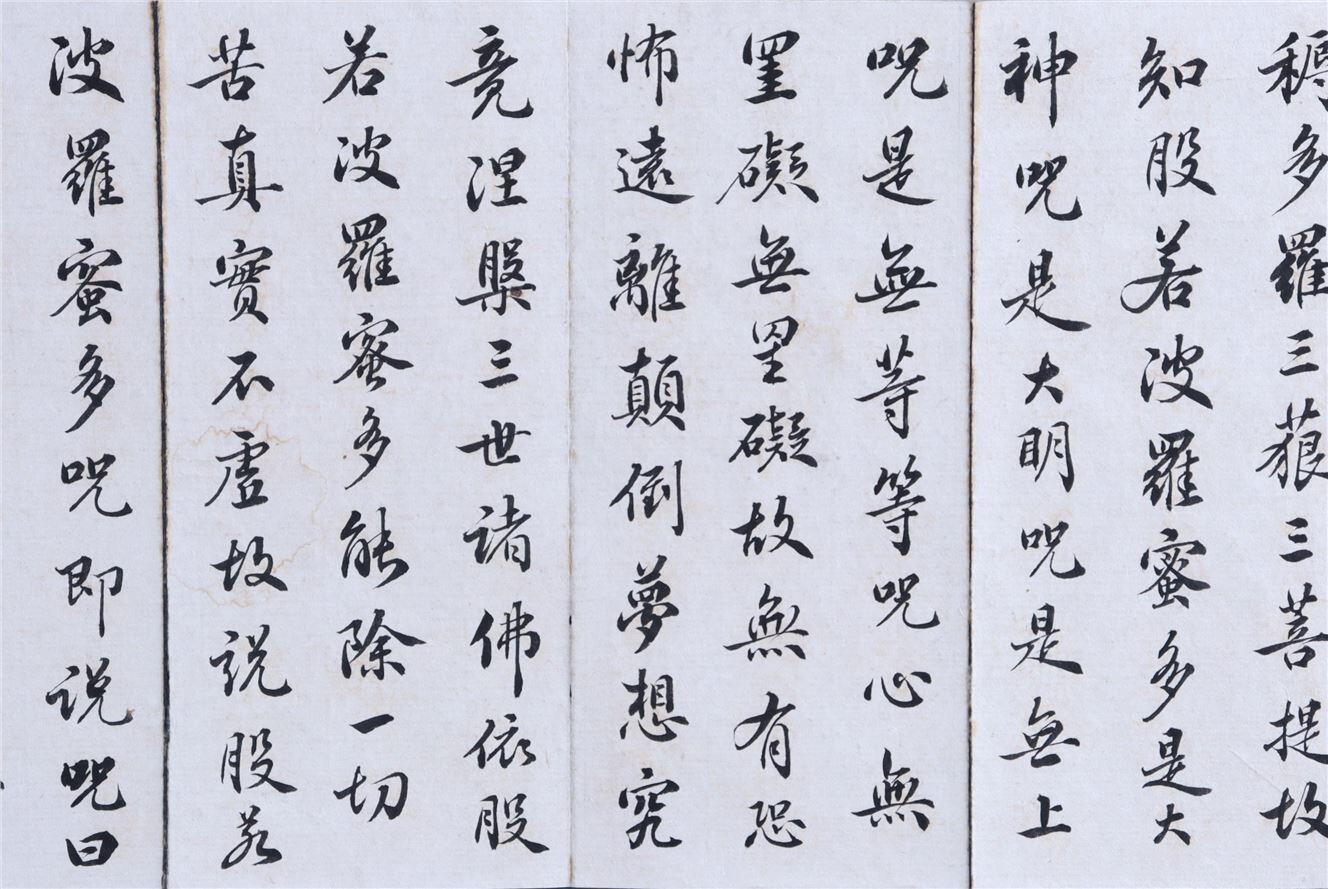 耨多羅三藐三菩提故
知般若波羅蜜多是大
神咒是大明咒是無上
咒是無等等咒心無
罣礙無罣礙故無有恐
怖遠離顛倒夢想究
竟涅槃三世諸佛依般
若波羅蜜多能除一切
苦真實不虛故說般若
波羅蜜多咒即說咒曰